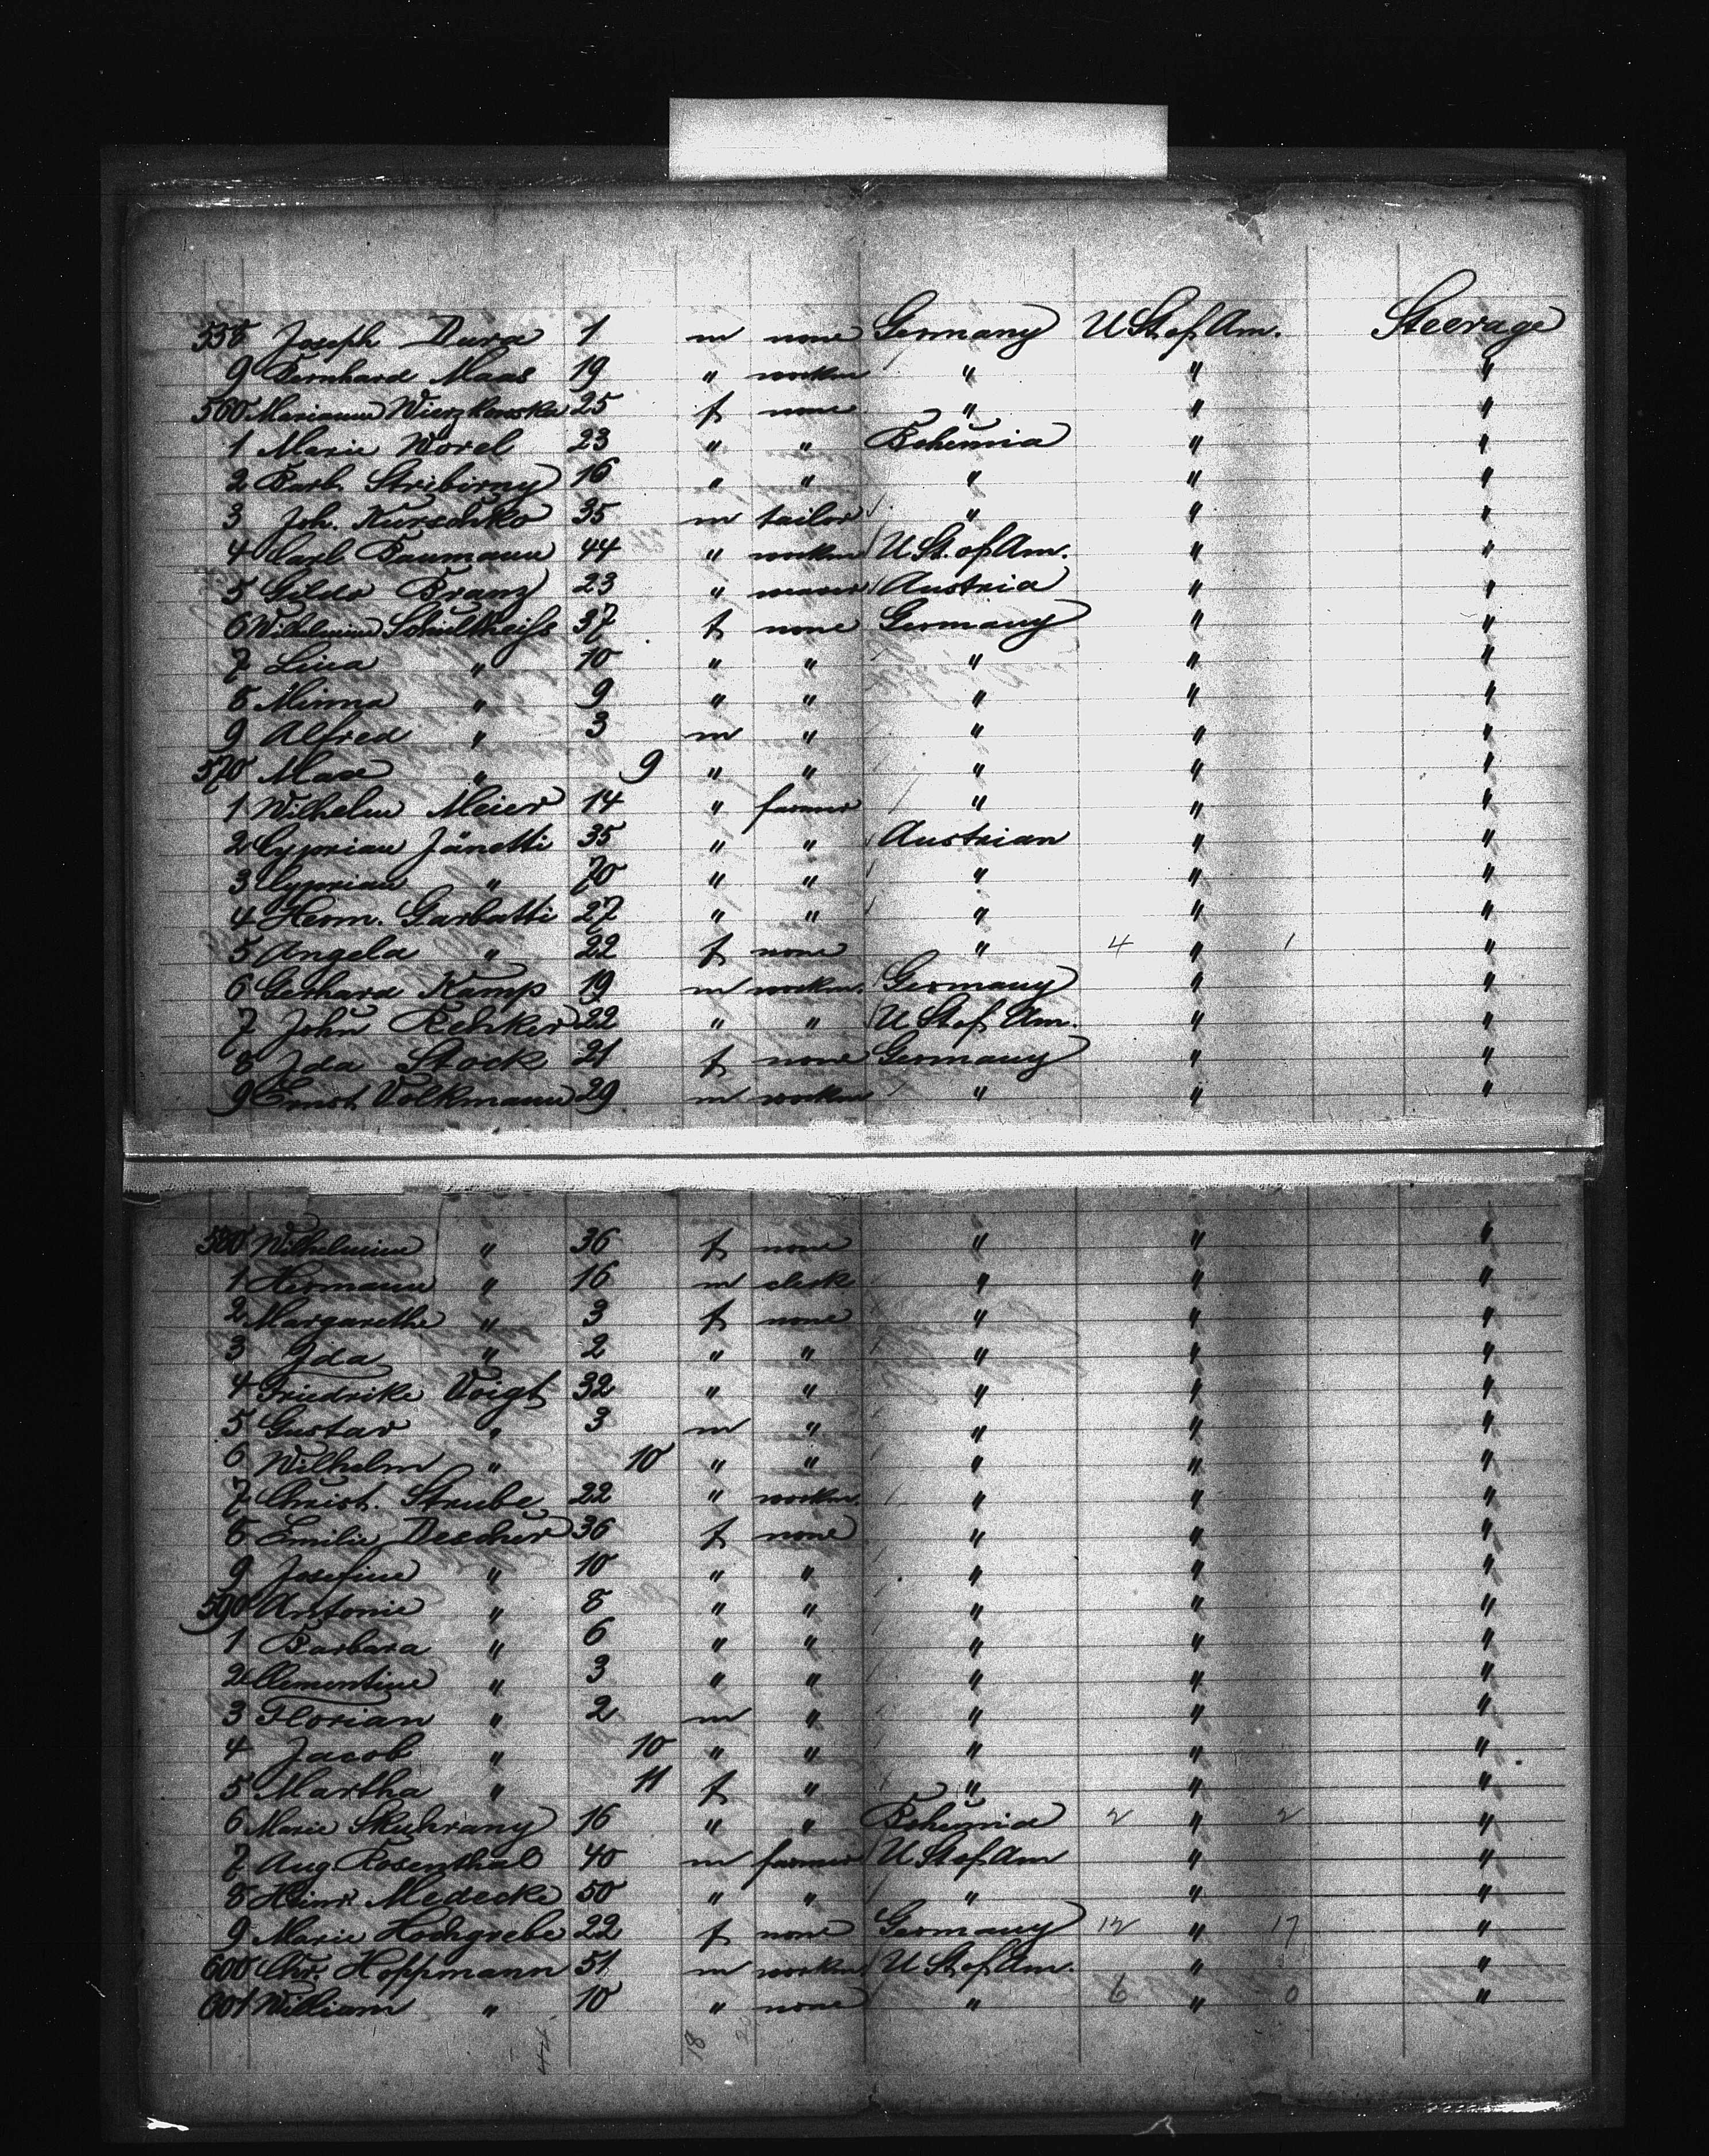 558 Joseph Dura 1 m none Germany U St. of Am. Steerage
9 Bernhard Maas 19 " workm " " "
560 Marianne Wierzkowska 25 f none " " "
1 Marie Worel 23 " " Bohemia " "
2 Barb. Stribirny 16 " " " " "
3 Joh. Kurschko 35 m tailor " " "
4 Carl Baumann 44 " workm U St. of Am. " "
5 Gilda Branz 23 " weaver Austria " "
6 Wilhelmine Schultheiss 37 f none Germany " "
7 Lina " 10 " " " " "
8 Minna " 9 " " " " "
9 Alfred " 3 m " " " "
570 Max " 9 " " " " "
1 Wilhelm Meier 14 " farmer " " "
2 Cyprian Jänetti 35 " " Austrian " "
3 Cyprian " 70 " " " " "
4 Herm. Garbatti 27 " " " " "
5 Angela " 22 f none " 4 " 1 "
6 Gerhard Kamp 19 m workm. Germany " "
7 John Rehker 22 " " U St. of Am. " "
8 Ida Stock 21 f none Germany " "
9 Ernst Volkmann 29 m workm " " "
580 Wilhelmine " 36 f none " " "
1 Hermann " 16 m clerk " " "
2 Margarethe " 3 f none " " "
3 Ida " 2 " " " " "
4 Friedrike Voigt 32 " " " " "
5 Gustav " 3 m " " " "
6 Wilhelm " 10 " " " " "
7 Christ. Strube 22 " workm. " " "
8 Emilie Descher 36 f none " " "
9 Josefine " 10 " " " " "
590 Antonie " 8 " " " " "
1 Barbara " 6 " " " " "
2 Clementine " 3 " " " " "
3 Florian " 2 m " " " "
4 Jacob " 10 " " " " "
5 Martha " 11 f " " " "
6 Marie Skuhrany 16 " " Bohemia 2 " 2 "
7 Aug Rosenthal 40 m farmer U St of Am " "
8 Heinr. Medecke 50 " " " " "
9 Marie Hochgrebe 22 f none Germany 12 " 17 "
600 Chr. Hoppmann 51 m workm U St of Am. " "
601 William " 10 " none " 6 " 0 "
44 18